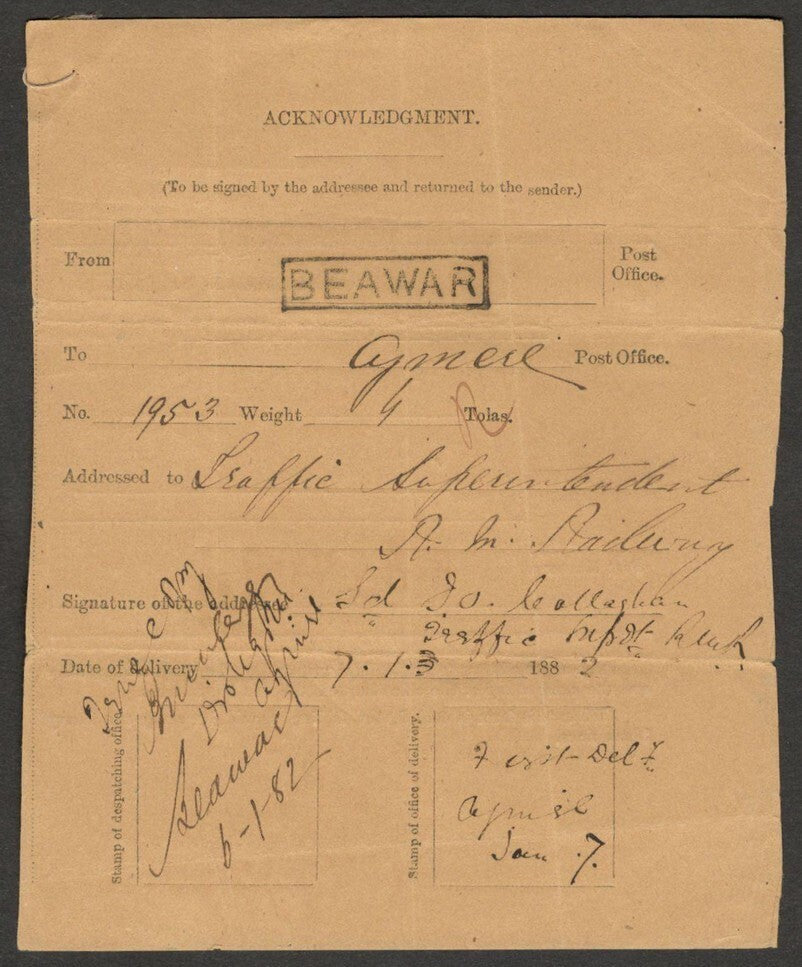 ACKNOWLEDGMENT.
(To be signed by the addressee and returned to the sender.)
From BEAWAR Post Office.
To Ajmere Post Office.
No. 1953 Weight 4 Tolas.
R
Addressed to Traffic Superintendent
R. M. Railway
Signature of the addressee Sd Callaghan
Traffic Supdt
Date of delivery 7.1. 1882
Stamp of despatching office.
Beawar
6-1-82
Stamp of office of delivery.
First Del
Ajmere
Jan 7.